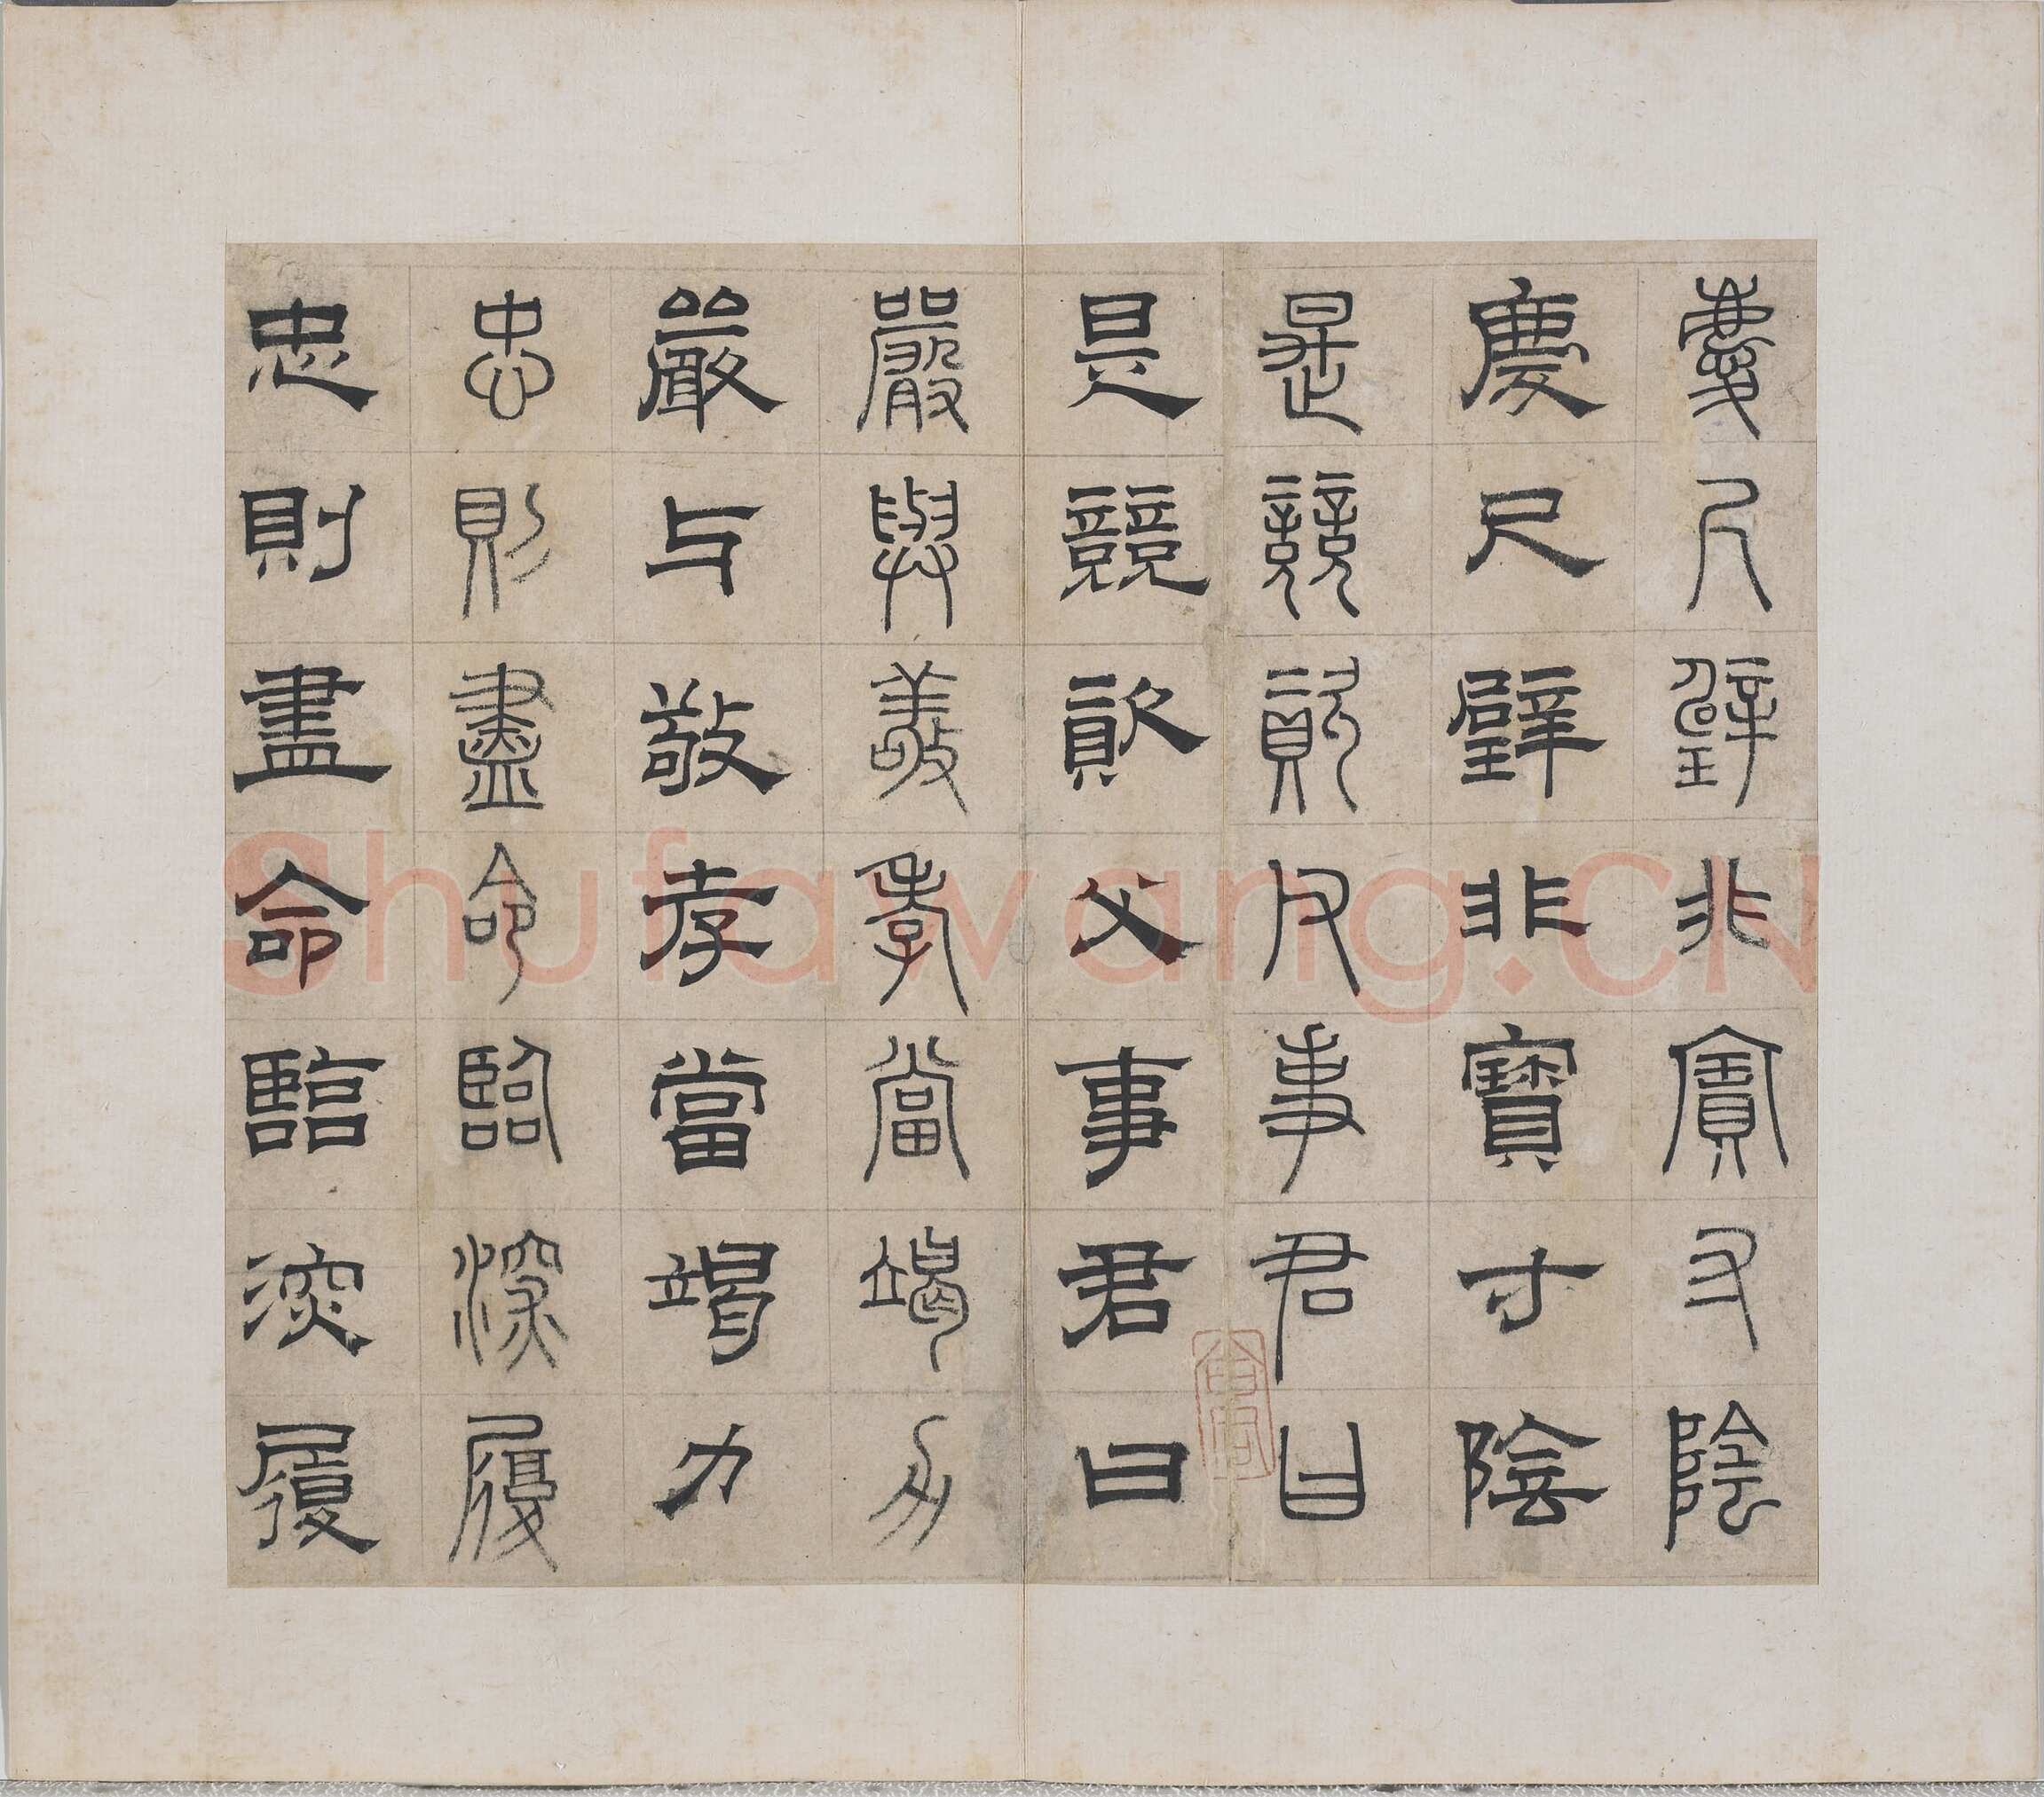 慶尺璧非寶寸陰
慶尺璧非寶寸陰
是競資父事君曰
是競資父事君曰
嚴與敬孝當竭力
嚴与敬孝當竭力
忠則盡命臨深履
忠則盡命臨深履
shufawang.CN